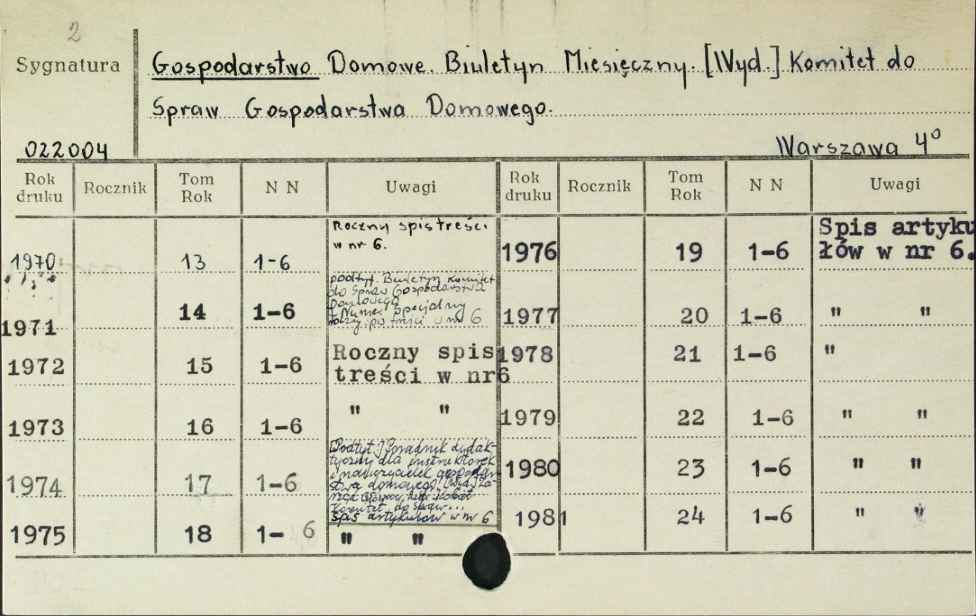 2
Sygnatura
Gospodarstwo Domowe. Biuletyn Miesięczny. [Wyd.] Komitet do
Spraw Gospodarstwa Domowego.
022004
Warszawa 4°
Rok druku Rocznik Tom Rok N N Uwagi Rok druku Rocznik Tom Rok N N Uwagi
1970 13 1-6 Roczny spis treści
w nr 6.
1971 14 1-6 podtyt. Biuletyn Komitet
do Spraw Gospodarstwa
Domowego
Numer specjalny
treści w nr 6
1972 15 1-6 Roczny spis
treści w nr6
1973 16 1-6 " "
1974 17 1-6 [Podtyt.] Poradnik dydak-
tyczny dla instruktorek
i nauczycielek gospodar-
stwa domowego.
Komitet do Spraw...
Spis artykułów w nr 6
1975 18 1- 6 " "
1976 19 1-6 Spis artyku
łów w nr 6.
1977 20 1-6 " "
1978 21 1-6 "
1979 22 1-6 " "
1980 23 1-6 " "
1981 24 1-6 " "